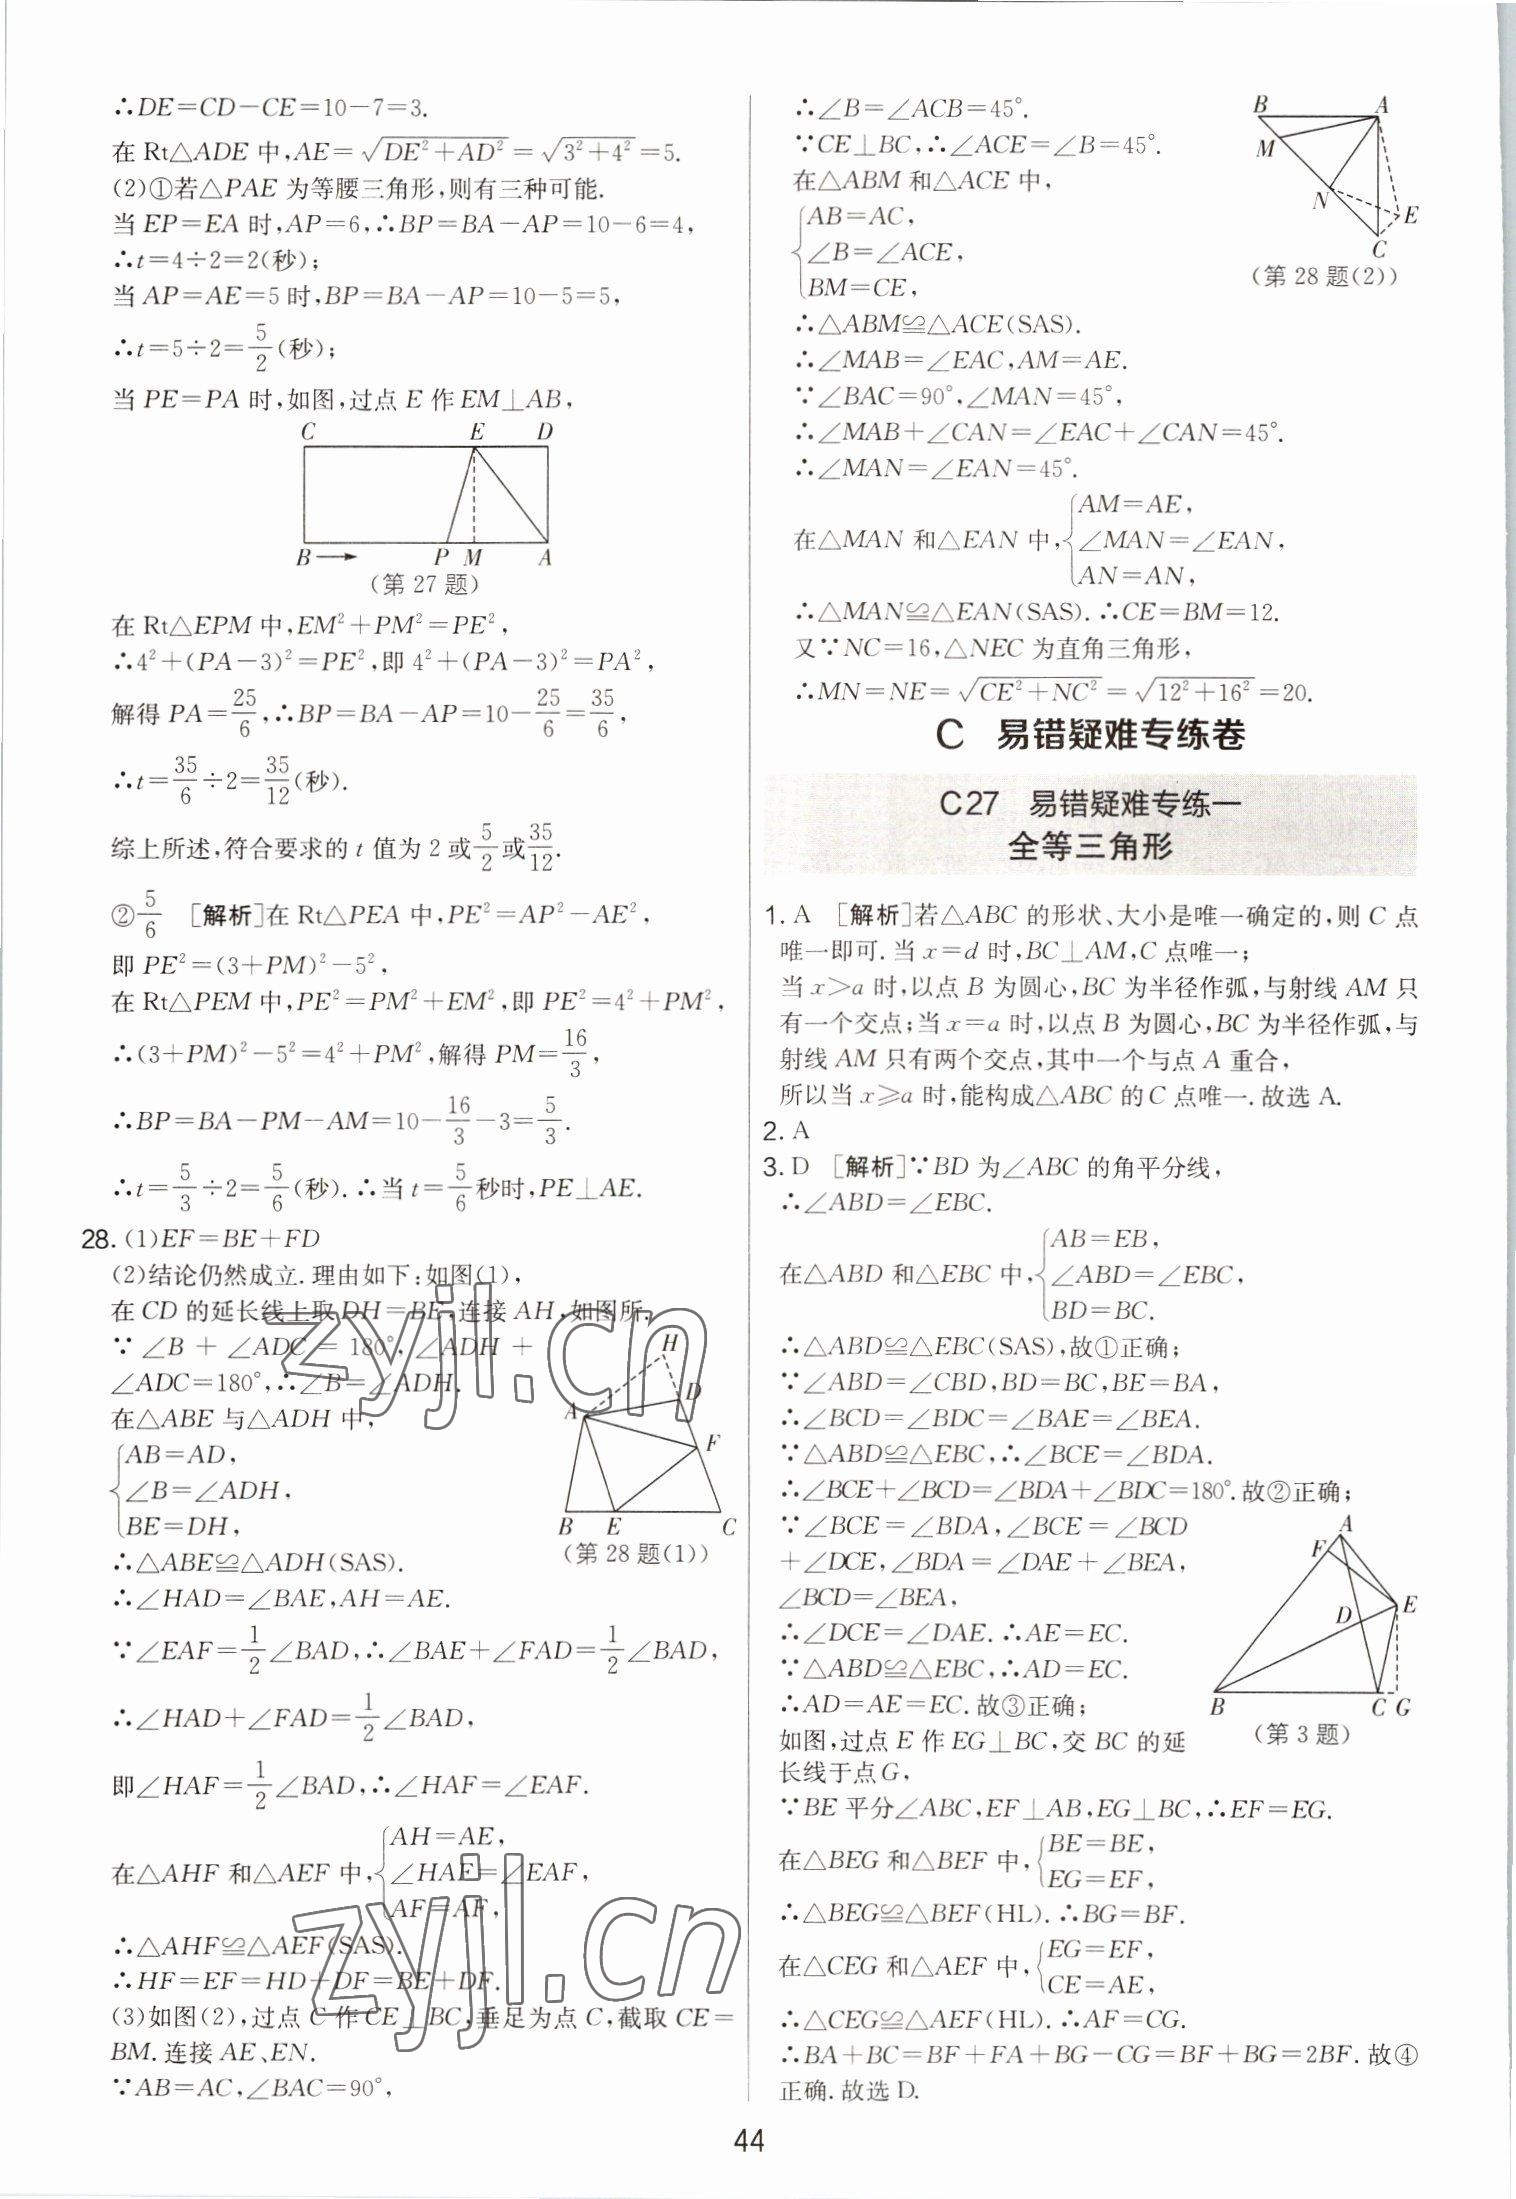 ∴DE=CD-CE=10-7=3.
在 Rt△ADE 中,AE=√(DE²+AD²)=√(3²+4²)=5.
(2)①若△PAE 为等腰三角形,则有三种可能.
当 EP=EA 时,AP=6,∴BP=BA-AP=10-6=4,
∴t=4÷2=2(秒);
当 AP=AE=5 时,BP=BA-AP=10-5=5,
∴t=5÷2=5/2(秒);
当 PE=PA 时,如图,过点 E 作 EM⊥AB,
C E D
B P M A
(第 27 题)
在 Rt△EPM 中,EM²+PM²=PE²,
∴4²+(PA-3)²=PE²,即 4²+(PA-3)²=PA²,
解得 PA=25/6,∴BP=BA-AP=10-25/6=35/6,
∴t=35/6÷2=35/12(秒).
综上所述,符合要求的 t 值为 2 或5/2或35/12.
②5/6 [解析]在 Rt△PEA 中,PE²=AP²-AE²,
即 PE²=(3+PM)²-5²,
在 Rt△PEM 中,PE²=PM²+EM²,即 PE²=4²+PM²,
∴(3+PM)²-5²=4²+PM²,解得 PM=16/3,
∴BP=BA-PM-AM=10-16/3-3=5/3.
∴t=5/3÷2=5/6(秒).∴当 t=5/6秒时,PE⊥AE.
28.(1)EF=BE+FD
(2)结论仍然成立.理由如下:如图(1),
在 CD 的延长线上取 DH=BE,连接 AH,如图所.
∵∠B+∠ADC=180°,∠ADH+
∠ADC=180°,∴∠B=∠ADH.
在△ABE 与△ADH 中,
AB=AD,
∠B=∠ADH,
BE=DH,
H
D
A
F
B E C
(第 28 题(1))
∴△ABE≌△ADH(SAS).
∴∠HAD=∠BAE,AH=AE.
∵∠EAF=1/2∠BAD,∴∠BAE+∠FAD=1/2∠BAD,
∴∠HAD+∠FAD=1/2∠BAD,
即∠HAF=1/2∠BAD,∴∠HAF=∠EAF.
在△AHF 和△AEF 中,
AH=AE,
∠HAE=∠EAF,
AF=AF,
∴△AHF≌△AEF(SAS).
∴HF=EF=HD+DF=BE+DF.
(3)如图(2),过点 C 作 CE⊥BC,垂足为点 C,截取 CE=
BM.连接 AE、EN.
∵AB=AC,∠BAC=90°,
∴∠B=∠ACB=45°.
∵CE⊥BC,∴∠ACE=∠B=45°.
在△ABM 和△ACE 中,
AB=AC,
∠B=∠ACE,
BM=CE,
B A
M
N
E
C
(第 28 题(2))
∴△ABM≌△ACE(SAS).
∴∠MAB=∠EAC,AM=AE.
∵∠BAC=90°,∠MAN=45°,
∴∠MAB+∠CAN=∠EAC+∠CAN=45°.
∴∠MAN=∠EAN=45°.
在△MAN 和△EAN 中,
AM=AE,
∠MAN=∠EAN,
AN=AN,
∴△MAN≌△EAN(SAS).∴CE=BM=12.
又∵NC=16,△NEC 为直角三角形,
∴MN=NE=√(CE²+NC²)=√(12²+16²)=20.
C 易错疑难专练卷
C27 易错疑难专练一
全等三角形
1. A [解析]若△ABC 的形状、大小是唯一确定的,则 C 点
唯一即可.当 x=d 时,BC⊥AM,C 点唯一;
当 x>a 时,以点 B 为圆心,BC 为半径作弧,与射线 AM 只
有一个交点;当 x=a 时,以点 B 为圆心,BC 为半径作弧,与
射线 AM 只有两个交点,其中一个与点 A 重合,
所以当 x≥a 时,能构成△ABC 的 C 点唯一.故选 A.
2. A
3. D [解析]∵BD 为∠ABC 的角平分线,
∴∠ABD=∠EBC.
在△ABD 和△EBC 中,
AB=EB,
∠ABD=∠EBC,
BD=BC.
∴△ABD≌△EBC(SAS),故①正确;
∵∠ABD=∠CBD,BD=BC,BE=BA,
∴∠BCD=∠BDC=∠BAE=∠BEA.
∵△ABD≌△EBC,∴∠BCE=∠BDA.
∴∠BCE+∠BCD=∠BDA+∠BDC=180°.故②正确;
∵∠BCE=∠BDA,∠BCE=∠BCD
+∠DCE,∠BDA=∠DAE+∠BEA,
∠BCD=∠BEA,
∴∠DCE=∠DAE.∴AE=EC.
∵△ABD≌△EBC,∴AD=EC.
∴AD=AE=EC.故③正确;
A
F
E
D
B C G
(第 3 题)
如图,过点 E 作 EG⊥BC,交 BC 的延
长线于点G,
∵BE 平分∠ABC,EF⊥AB,EG⊥BC,∴EF=EG.
在△BEG 和△BEF 中,
BE=BE,
EG=EF,
∴△BEG≌△BEF(HL).∴BG=BF.
在△CEG 和△AEF 中,
EG=EF,
CE=AE,
∴△CEG≌△AEF(HL).∴AF=CG.
∴BA+BC=BF+FA+BG-CG=BF+BG=2BF.故④
正确.故选 D.
44
zyjl.cn
zyjl.cn